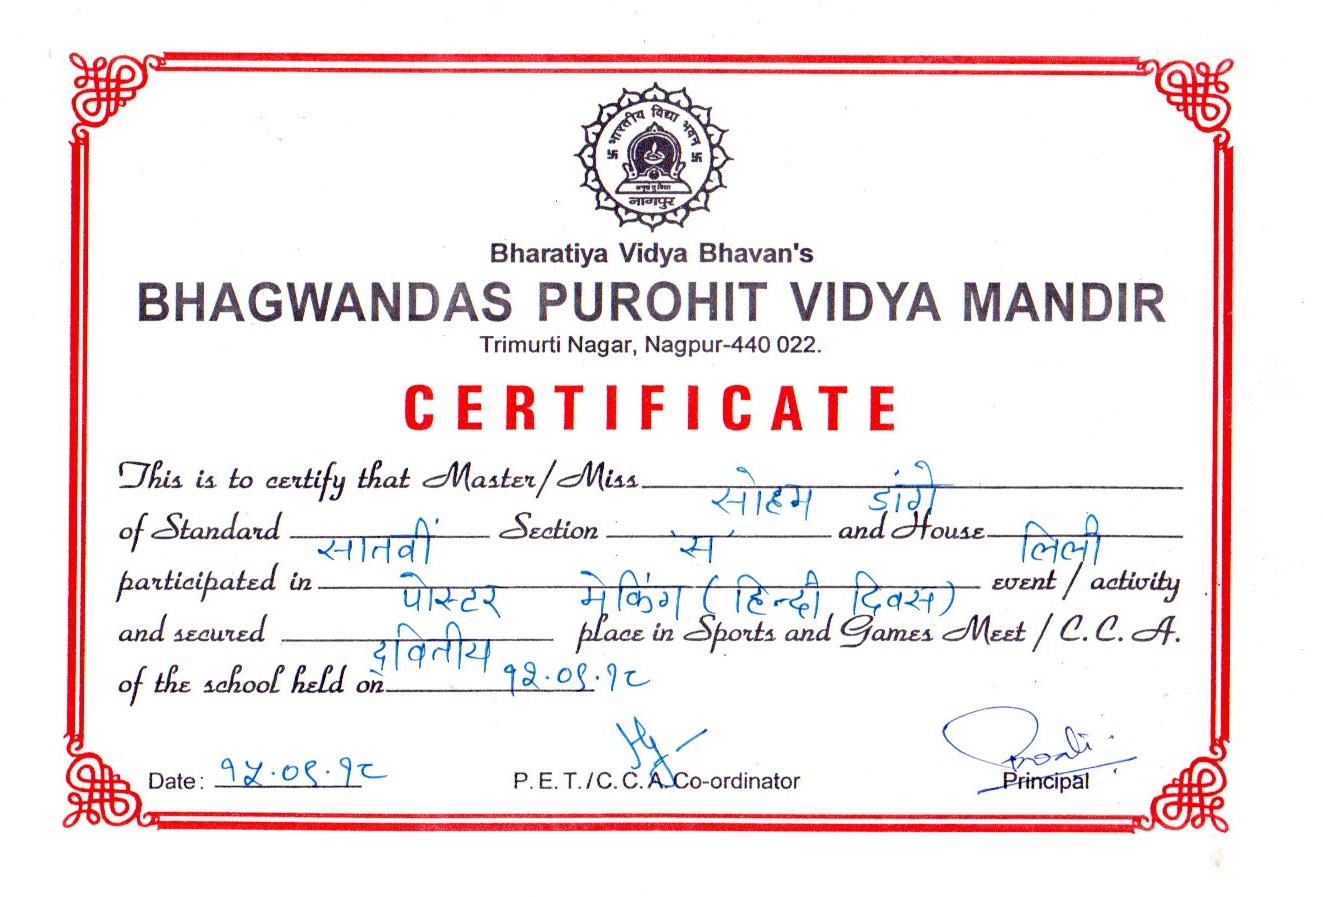 भारतीय विद्या भवन
नागपुर
Bharatiya Vidya Bhavan's
BHAGWANDAS PUROHIT VIDYA MANDIR
Trimurti Nagar, Nagpur-440 022.
CERTIFICATE
This is to certify that Master/Miss सोहम डांगे
of Standard सातवीं Section स and House लिली
participated in पोस्टर मेकिंग (हिन्दी दिवस) event / activity
and secured द्वितीय place in Sports and Games Meet / C. C. A.
of the school held on १२.०९.१८
Date: १५.०९.१८ P. E. T. / C. C. A. Co-ordinator Principal